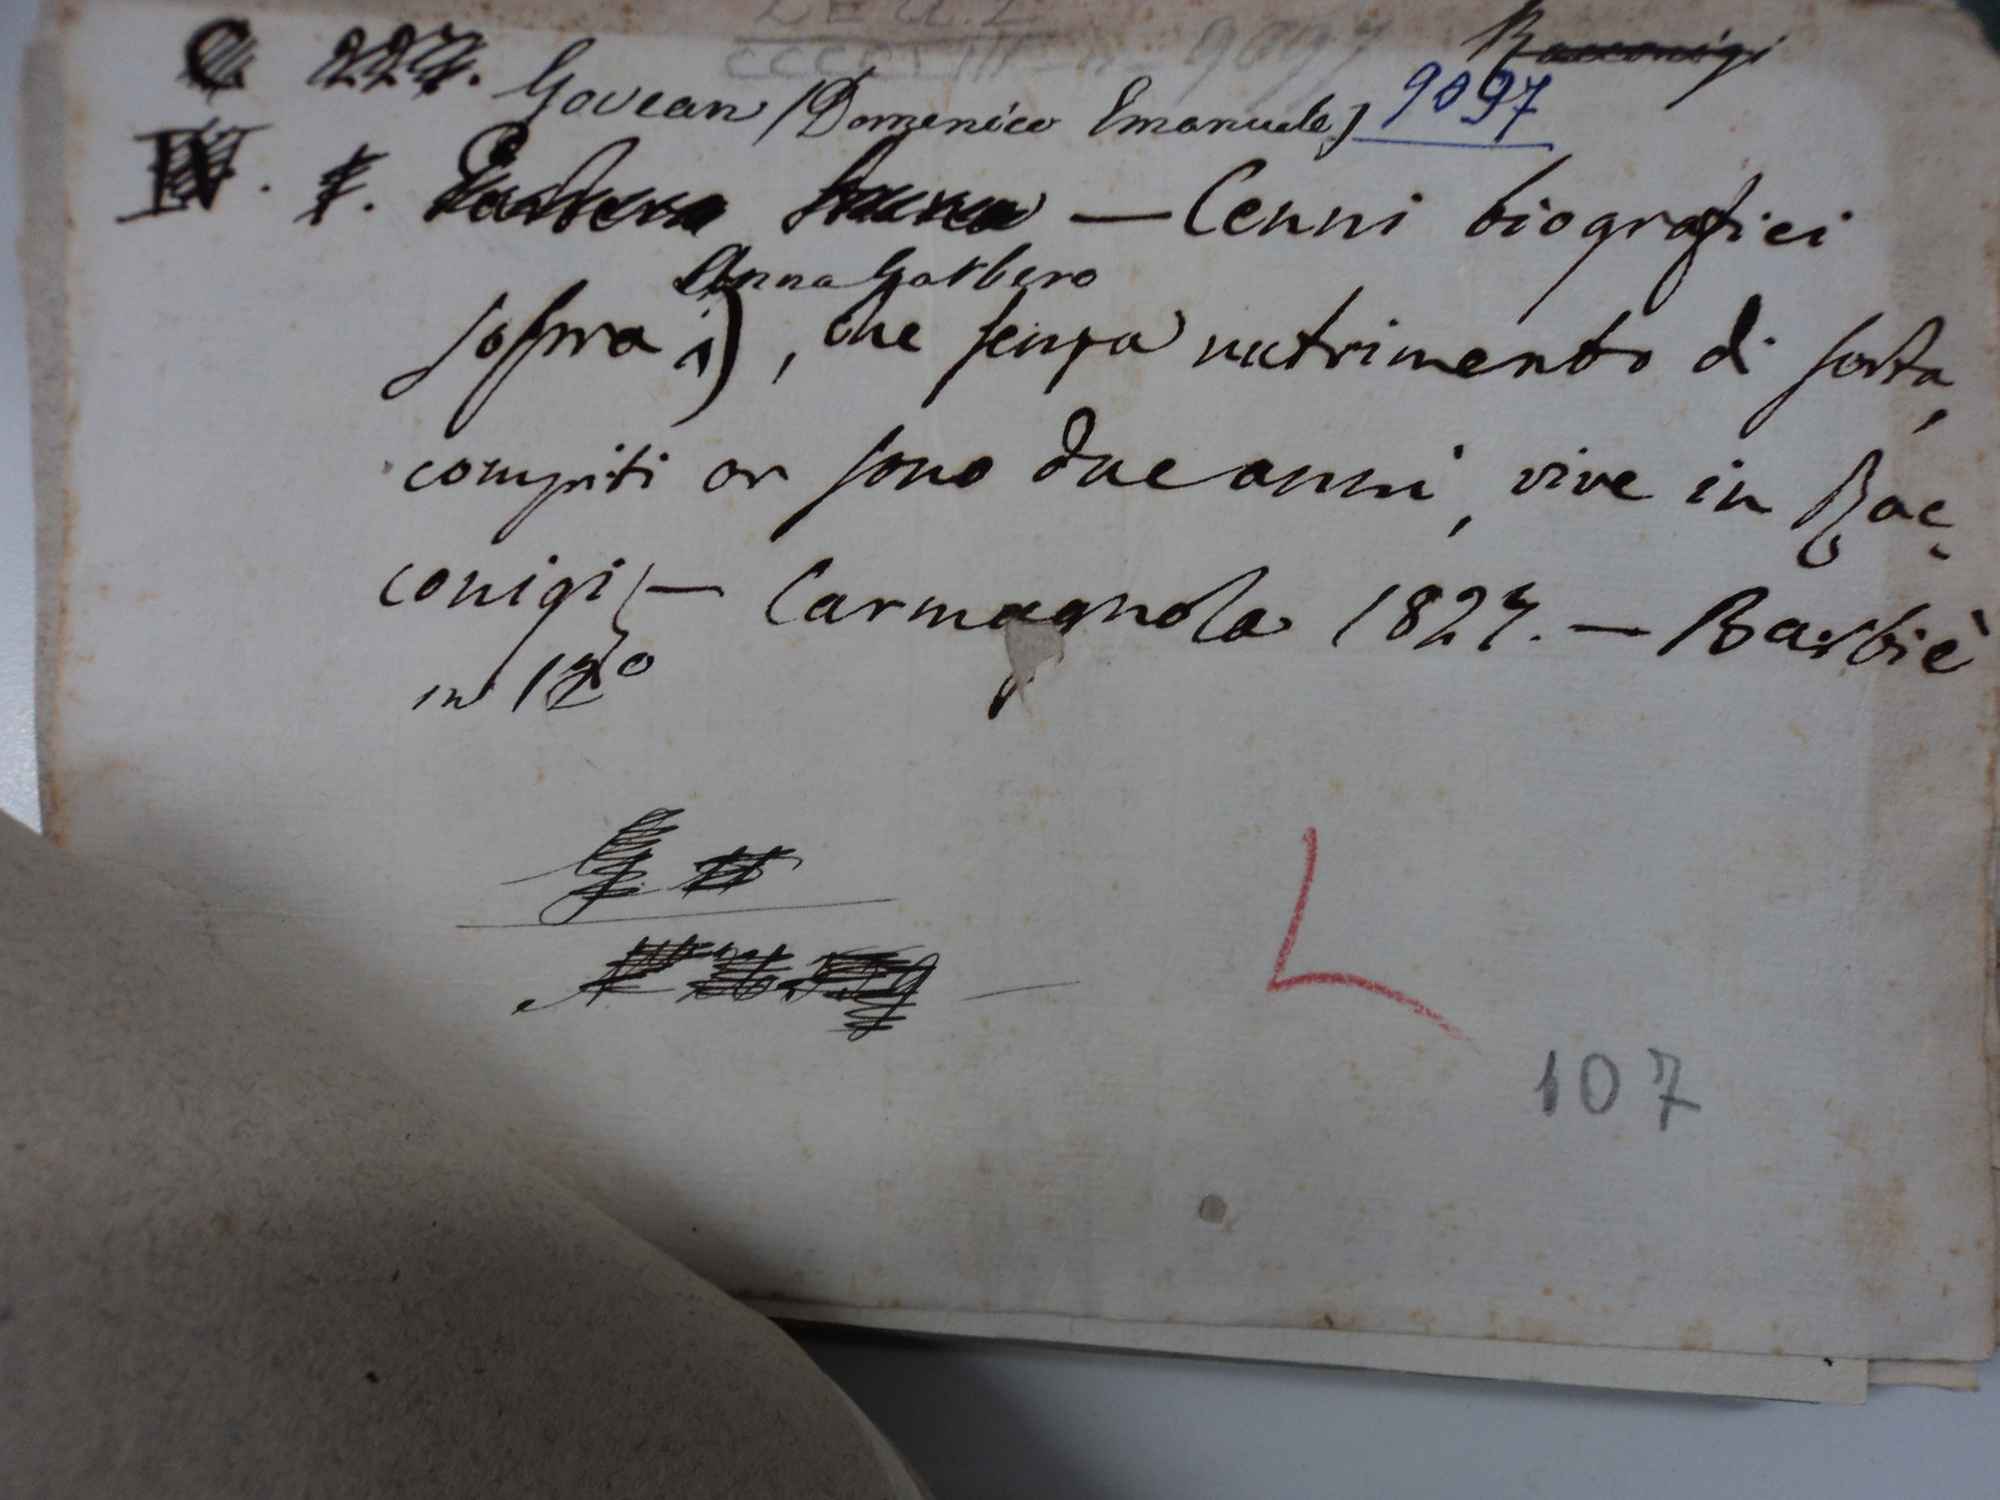 9097
Racconigi
C 227.
Govean (Domenico Emanuele) 9097
IV. — Cenni biografici
Anna Garbero
sopra 1), che senza nutrimento di sorta,
compiti or sono due anni, vive in Rac-
conigi — Carmagnola 1827. — Barbiè
in 12º
L
107